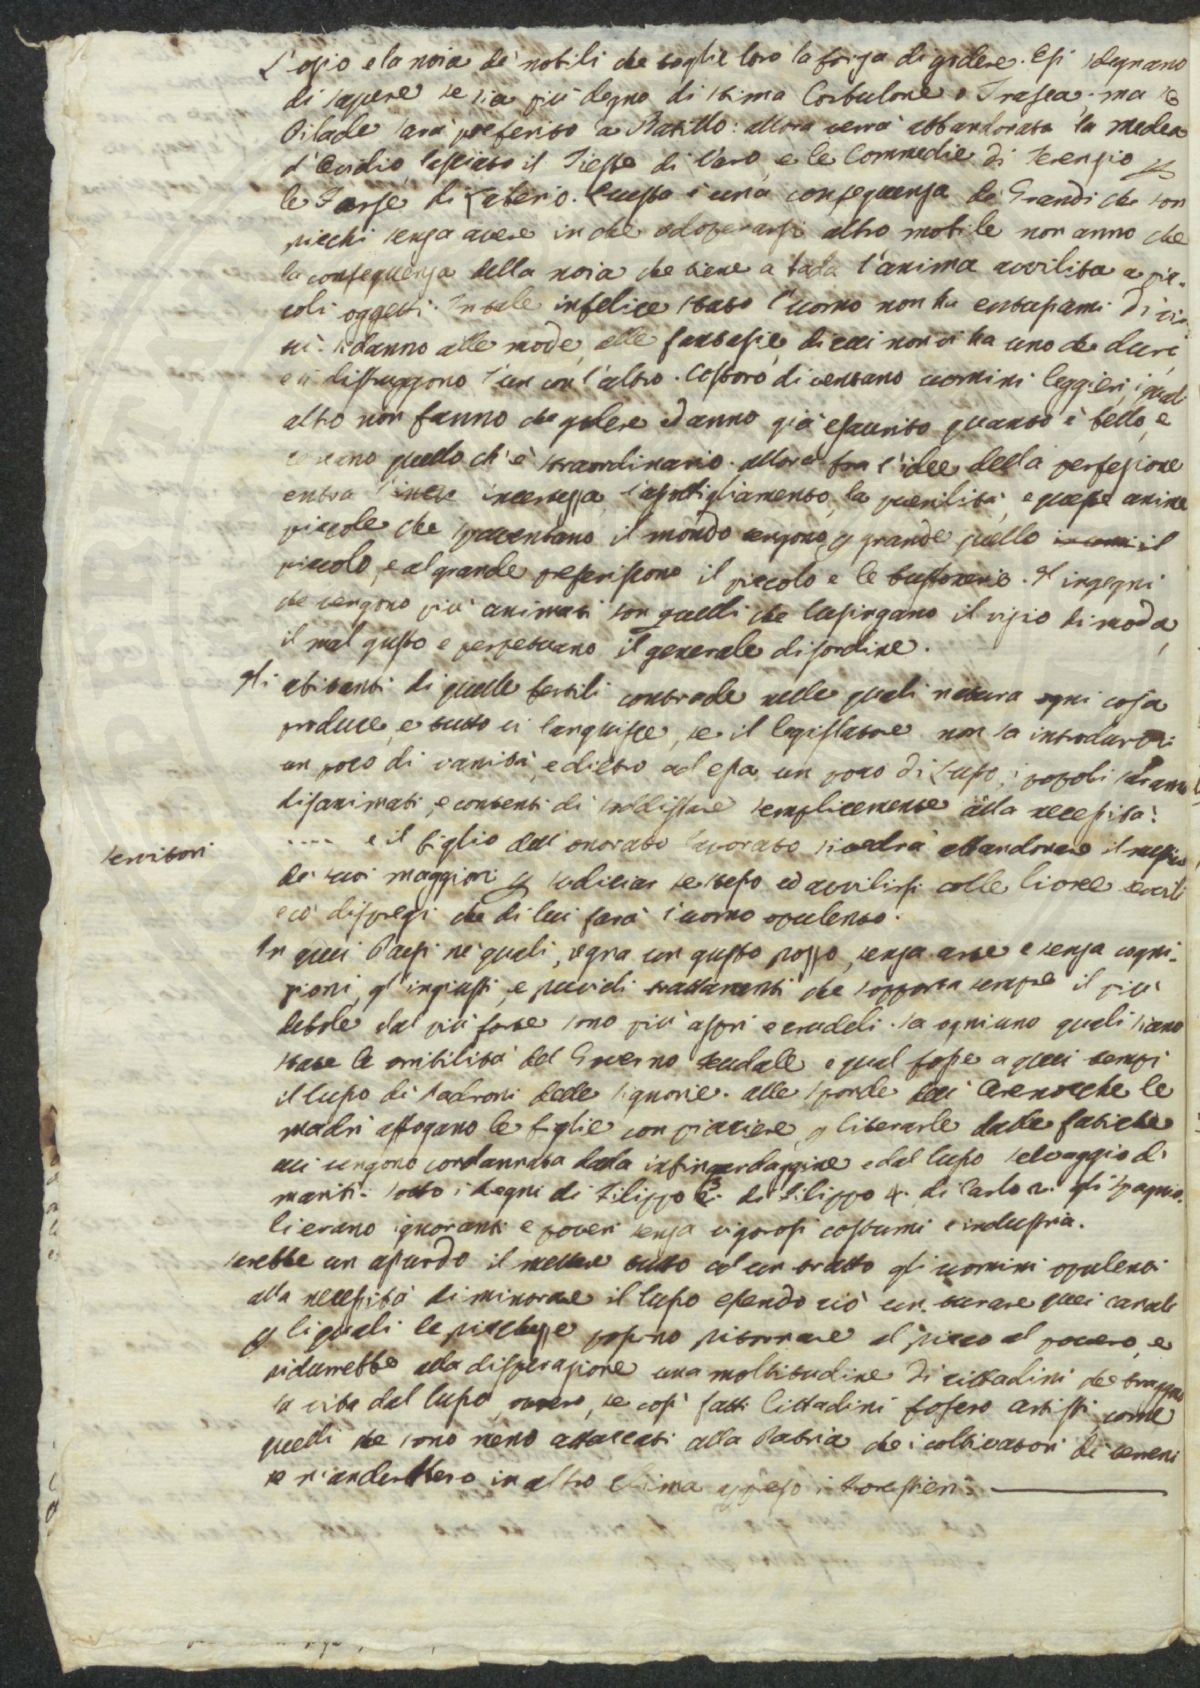 L'ozio e la noia de' nobili che toglie loro la forza di godere. Essi sdegnano
di sapere se sia più degno di stima Corbulone o Trasea, ma se
Pilade sarà preferito a Batillo: allora verrà abbandonata la Medea
d'Ovidio, lasciato il Tieste di Varo, e le Commedie di Terenzio p
le Farse di Laberio. Questa è una conseguenza de' Grandi che son
ricchi senza avere in che adoperarsi altro mobile non anno che
la conseguenza della noia che tiene a bada l'anima avvilita a pic-
coli oggetti. In tale infelice stato l'uomo non ha
si danno alle mode, alle fantasie, di cui non vi ha uno che duri
e si distruggono l'un con l'altro. Costoro diventano uomini leggieri, i quali
altro non fanno che godere ed anno già esaurito quanto è bello, e
quello ch'è straordinario. allora fra l'idee della perfezione
entra l'incertezza, l'assottigliamento, la puerilità, e queste anime
piccole che spaventano il mondo tengono p grande quello il
piccolo, e al grande preferiscono il piccolo e le buffonerie. Gl'ingegni
che vengono più animati son quelli che lusingano il vizio di moda,
il mal gusto e perpetuano il generale disordine.
Gli abitanti di quelle fertili contrade nelle quali natura ogni cosa
produce, e tutto vi languisce, se il legislatore non sa introdurvi
un poco di vanità, e dietro ad essa un poco di Lusso, i popoli saranno
disanimati, e contenti di soddisfare semplicemente alla necessità.
servitori
.... e il figlio dell'onorato lavorato si vedrà abbandonare il
de' suoi maggiori p sudiciar se stesso ed avvilirsi colle livree servili
e co' dispregi che di lui farà l'uomo opulento.
In quei Paesi ne' quali, regna un gusto rozzo, senza arte e senza cogni-
zioni, gl'ingiusti, e trattamenti che sopporta sempre il più
debole dal più forte sono più aspri e crudeli. Sa ogniuno quali siano
state le orribilità del Governo feudale e qual fosse a quei tempi
il lusso di Padroni delle signorie. alle sponde dell'Orenoche le
madri affogano le figlie con piacere, p liberarle dalle fatiche
cui vengono condannata dalla infingardaggine e dal lusso selvaggio di
mariti. sotto i Regni di Filippo 3. di Filippo 4. di Carlo 2. gli Spagnio-
li erano ignoranti e poveri senza vigorosi costumi e industria.
sarebbe un assurdo il mettere tutto ad un tratto gli uomini opulenti
alla necessità di minorare il lusso essendo ciò un turare quei canali
p li quali le ricchezze possono ritornare al ricco al povero, e
ridurrebbe alla disperazione una moltitudine di cittadini che traggono
la vita dal lusso, ovvero, se così fatti Cittadini fossero artisti come
quelli che sono meno attaccati alla Patria che i coltivatori di terreni
se n'anderebbero in altro clima appresso i forestieri.